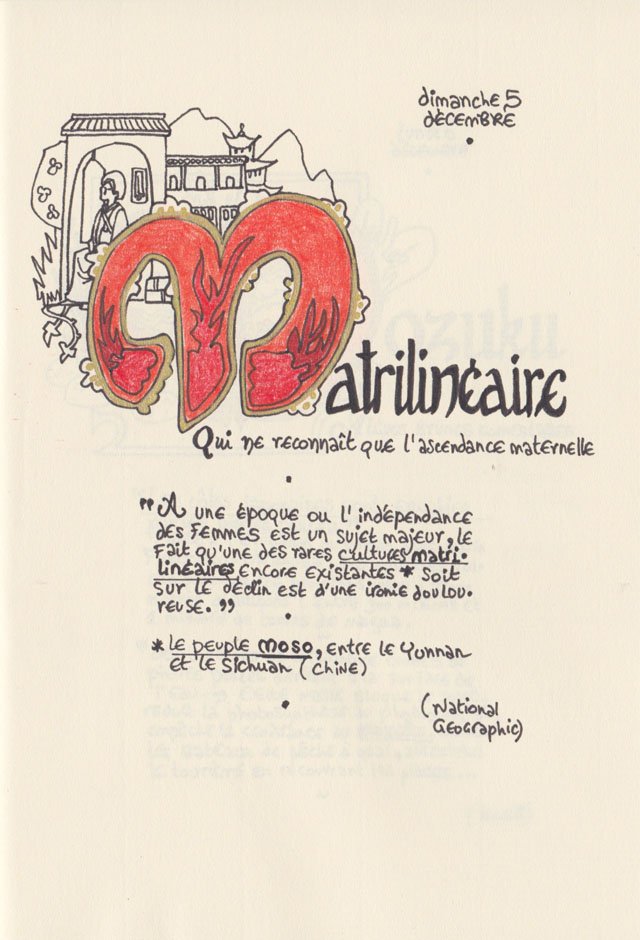 dimanche 5
décembre
Matrilinéaire
Qui ne reconnaît que l'ascendance maternelle
"A une époque ou l'indépendance
des femmes est un sujet majeur, le
fait qu'une des rares cultures matri-
linéaires encore existantes * soit
sur le déclin est d'une ironie doulou-
reuse."
* le peuple moso, entre le Yunnan
et le Sichuan (Chine)
(National
Geographic)